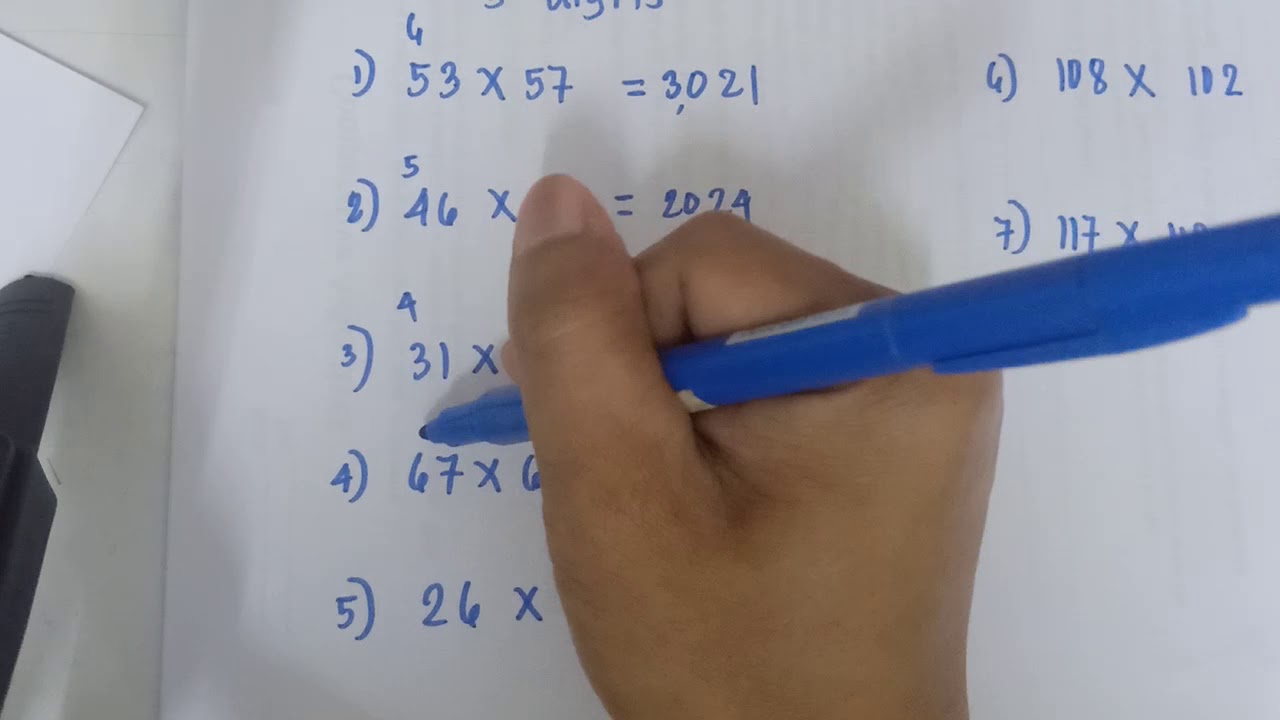 digits
6
1) 53 x 57 = 3,021
5
2) 46 x = 2024
4
3) 31 x
4) 67 x 6
5) 26 x
6) 108 x 102
7) 117 x